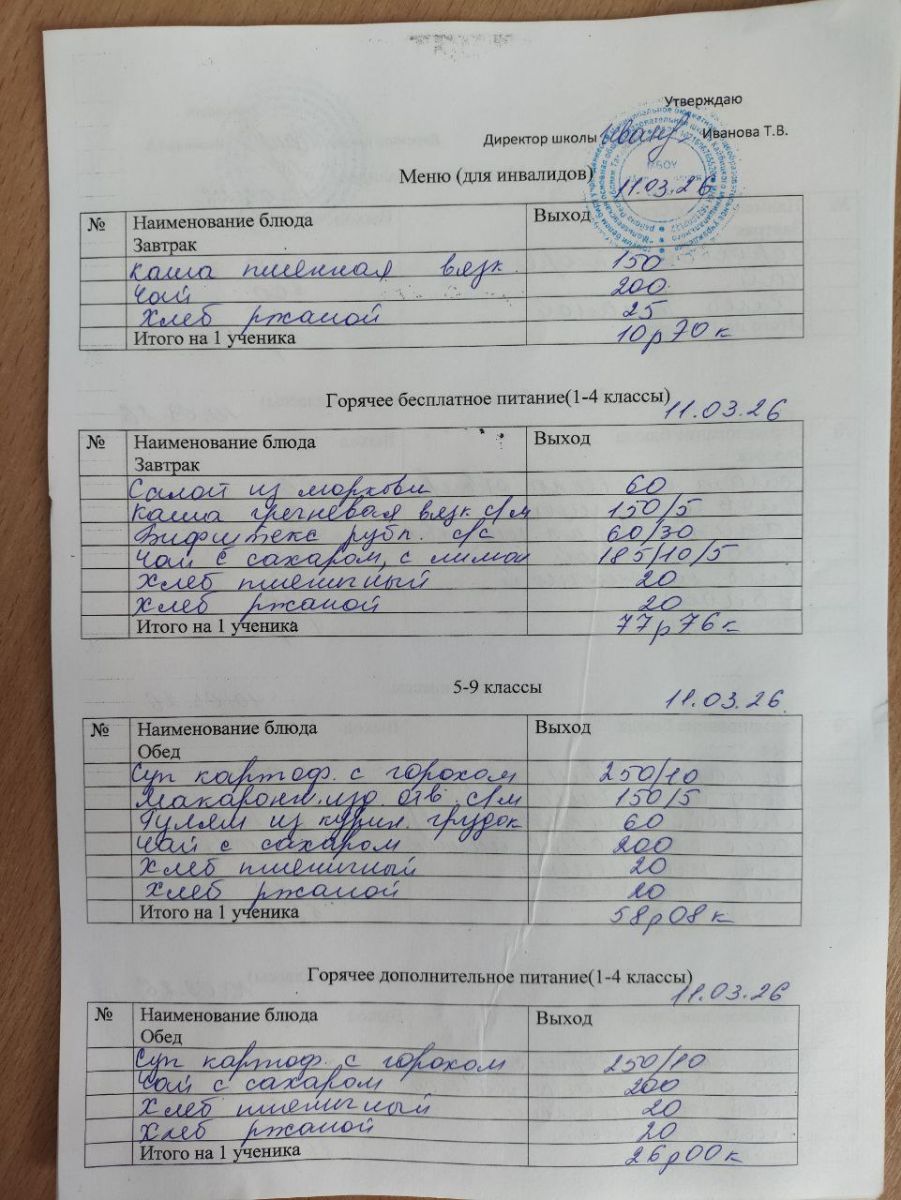 Утверждаю
Директор школы Иванова Т.В.
Меню (для инвалидов) 11.03.26
№ Наименование блюда Выход
Завтрак
Каша пшенная вязк. 150
Чай 200
Хлеб ржаной 25
Итого на 1 ученика 10р70к
Горячее бесплатное питание(1-4 классы) 11.03.26
№ Наименование блюда Выход
Завтрак
Салат из моркови 60
Каша гречневая вязк с/м 150/5
Бифштекс рубл. с/с 60/30
Чай с сахаром, с лимон 185/10/5
Хлеб пшеничный 20
Хлеб ржаной 20
Итого на 1 ученика 77р76к
5-9 классы 11.03.26.
№ Наименование блюда Выход
Обед
Суп картоф. с горохом 250/10
Макаронн. изд. отв. с/м 150/5
Гуляш из курин. грудок 60
Чай с сахаром 200
Хлеб пшеничный 20
Хлеб ржаной 20
Итого на 1 ученика 58р08к
Горячее дополнительное питание(1-4 классы) 11.03.26
№ Наименование блюда Выход
Обед
Суп картоф. с горохом 250/10
Чай с сахаром 200
Хлеб пшеничный 20
Хлеб ржаной 20
Итого на 1 ученика 26р00к